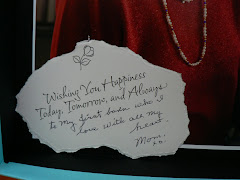 Wishing You Happiness
Today, Tomorrow, and Always
to my first born who I
love with all my
heart.
Mom.